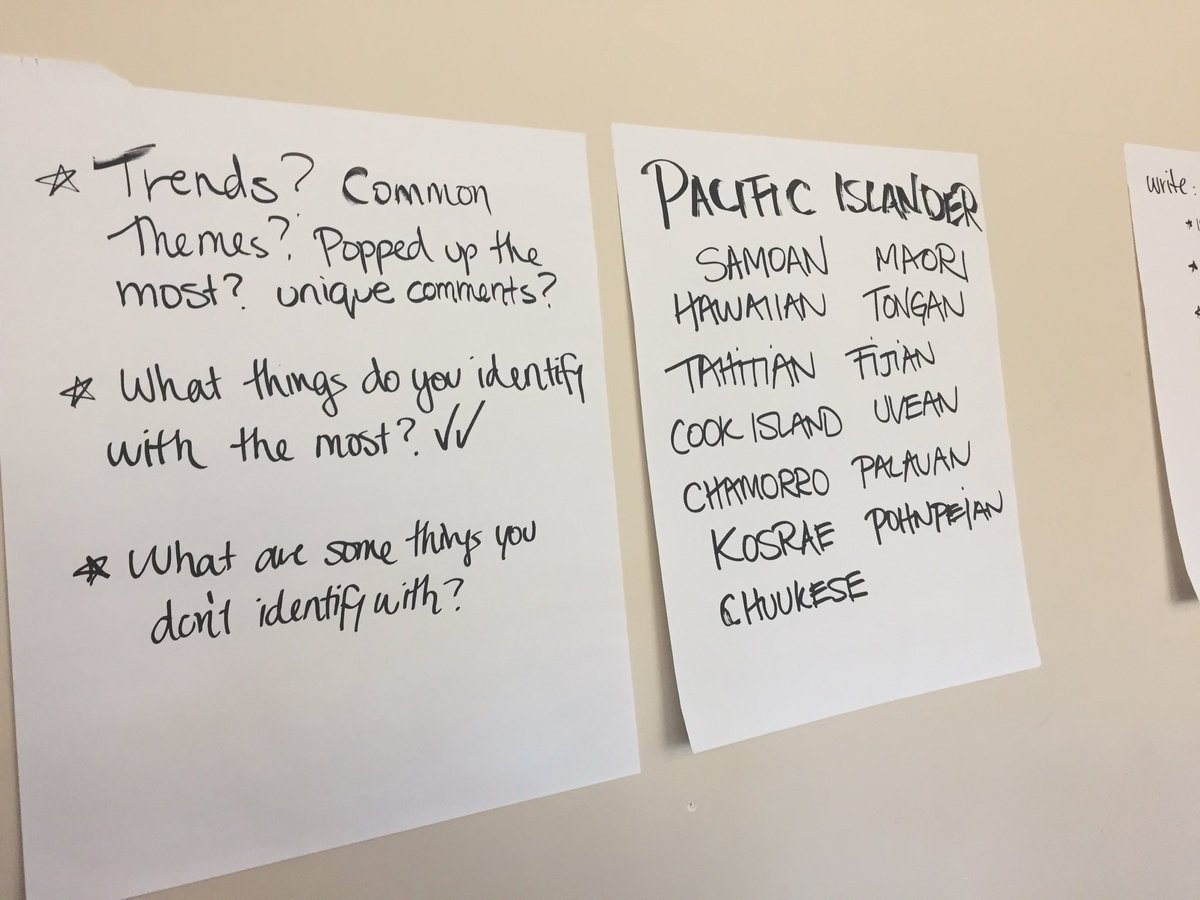 ☆ Trends? Common
Themes? Popped up the
most? unique comments?
☆ What things do you identify
with the most? ✓✓
☆ What are some things you
don't identify with?
PACIFIC ISLANDER
SAMOAN MAORI
HAWAIIAN TONGAN
TAHITIAN FIJIAN
COOK ISLAND UVEAN
CHAMORRO PALAUAN
KOSRAE POHNPEIAN
CHUUKESE
write: